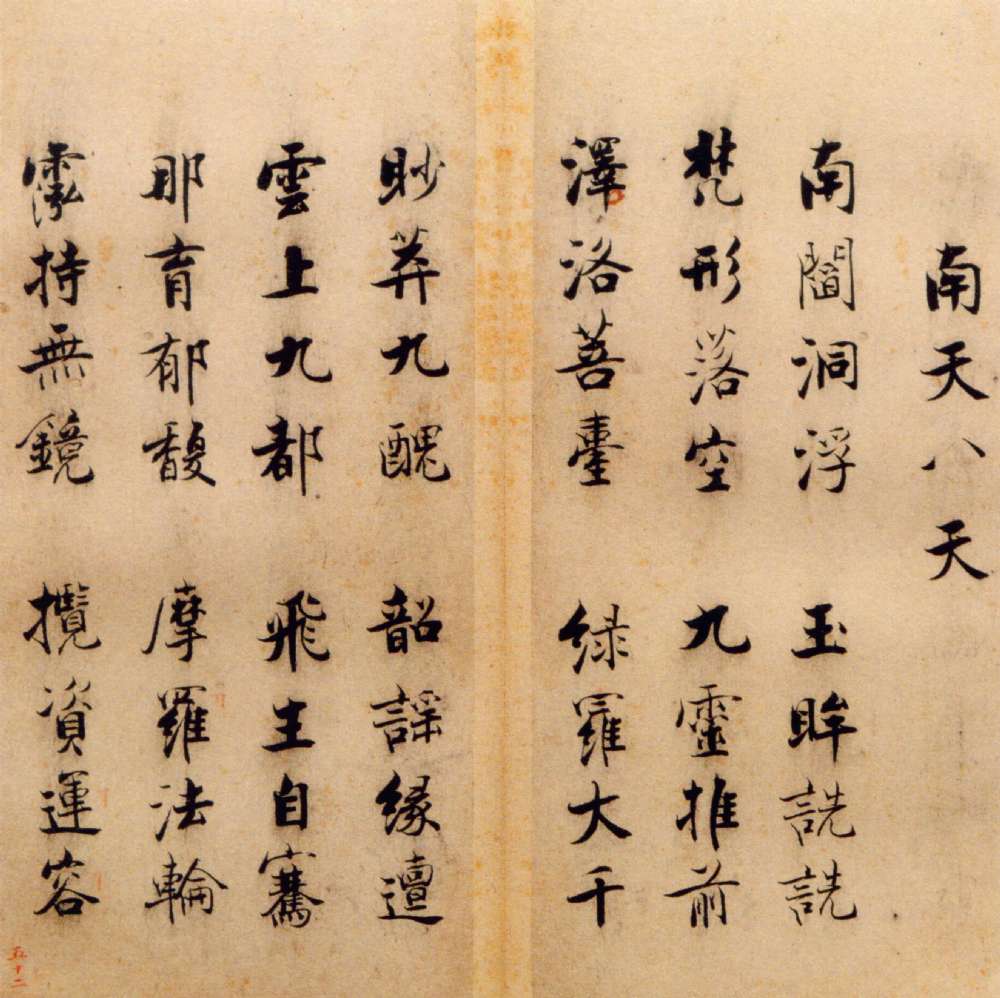 南天八天
南閻洞浮 玉眸詵詵
梵形落空 九靈推前
澤洛菩臺 緑羅大千
眇莽九醜 韶謡緣邅
雲上九都 飛生自騫
那育郁馥 摩羅法輪
霐持無鏡 攬資運容
五十二